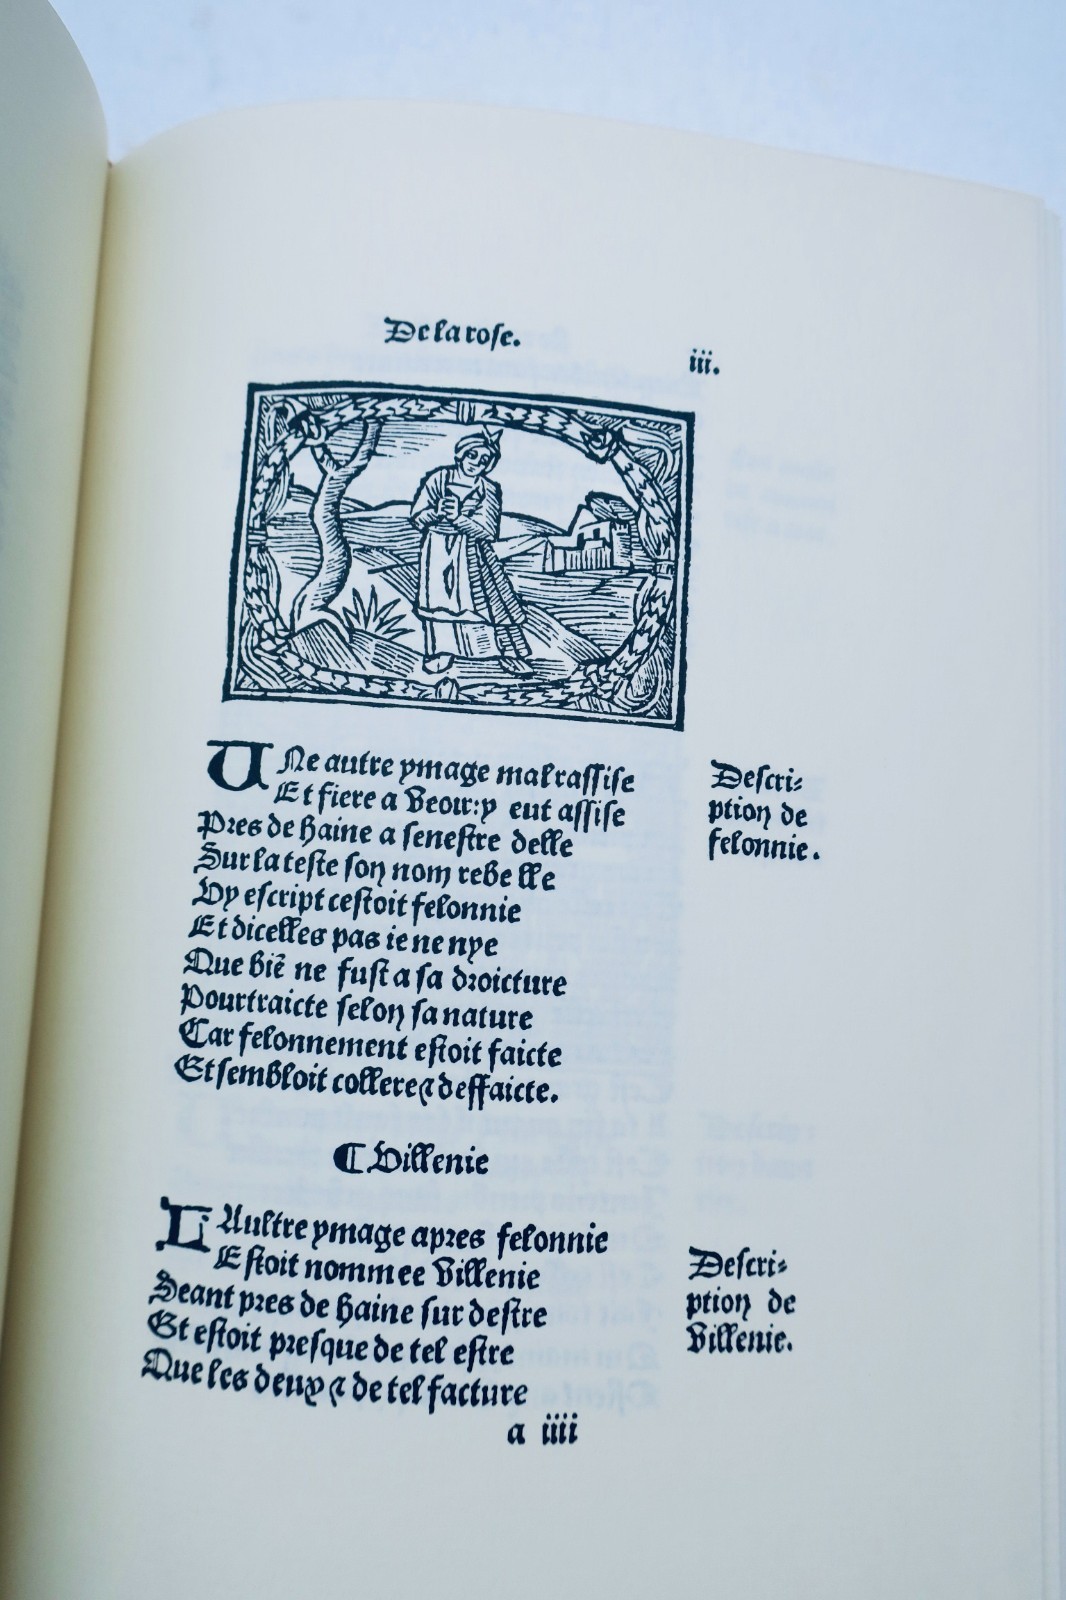 De la rose.
iii.
UNe autre ymage mal rassise
Et fiere a veoir: y eut assise
Pres de haine a senestre delle
Sur la teste son nom rebelle
Vy escript cestoit felonnie
Et dicelles pas ie ne nye
Que biē ne fust a sa droicture
Pourtraicte selon sa nature
Car felonnement estoit faicte
Et sembloit collere & deffaicte.
Descri-
ption de
felonnie.
¶ Villenie
LAultre ymage apres felonnie
Estoit nommee Villenie
Seant pres de haine sur destre
Et estoit presque de tel estre
Que les deux & de tel facture
Descri-
ption de
Villenie.
a iiii